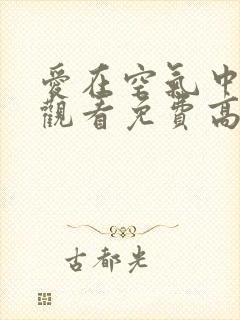 愛在空氣中
觀看免費高
古都光